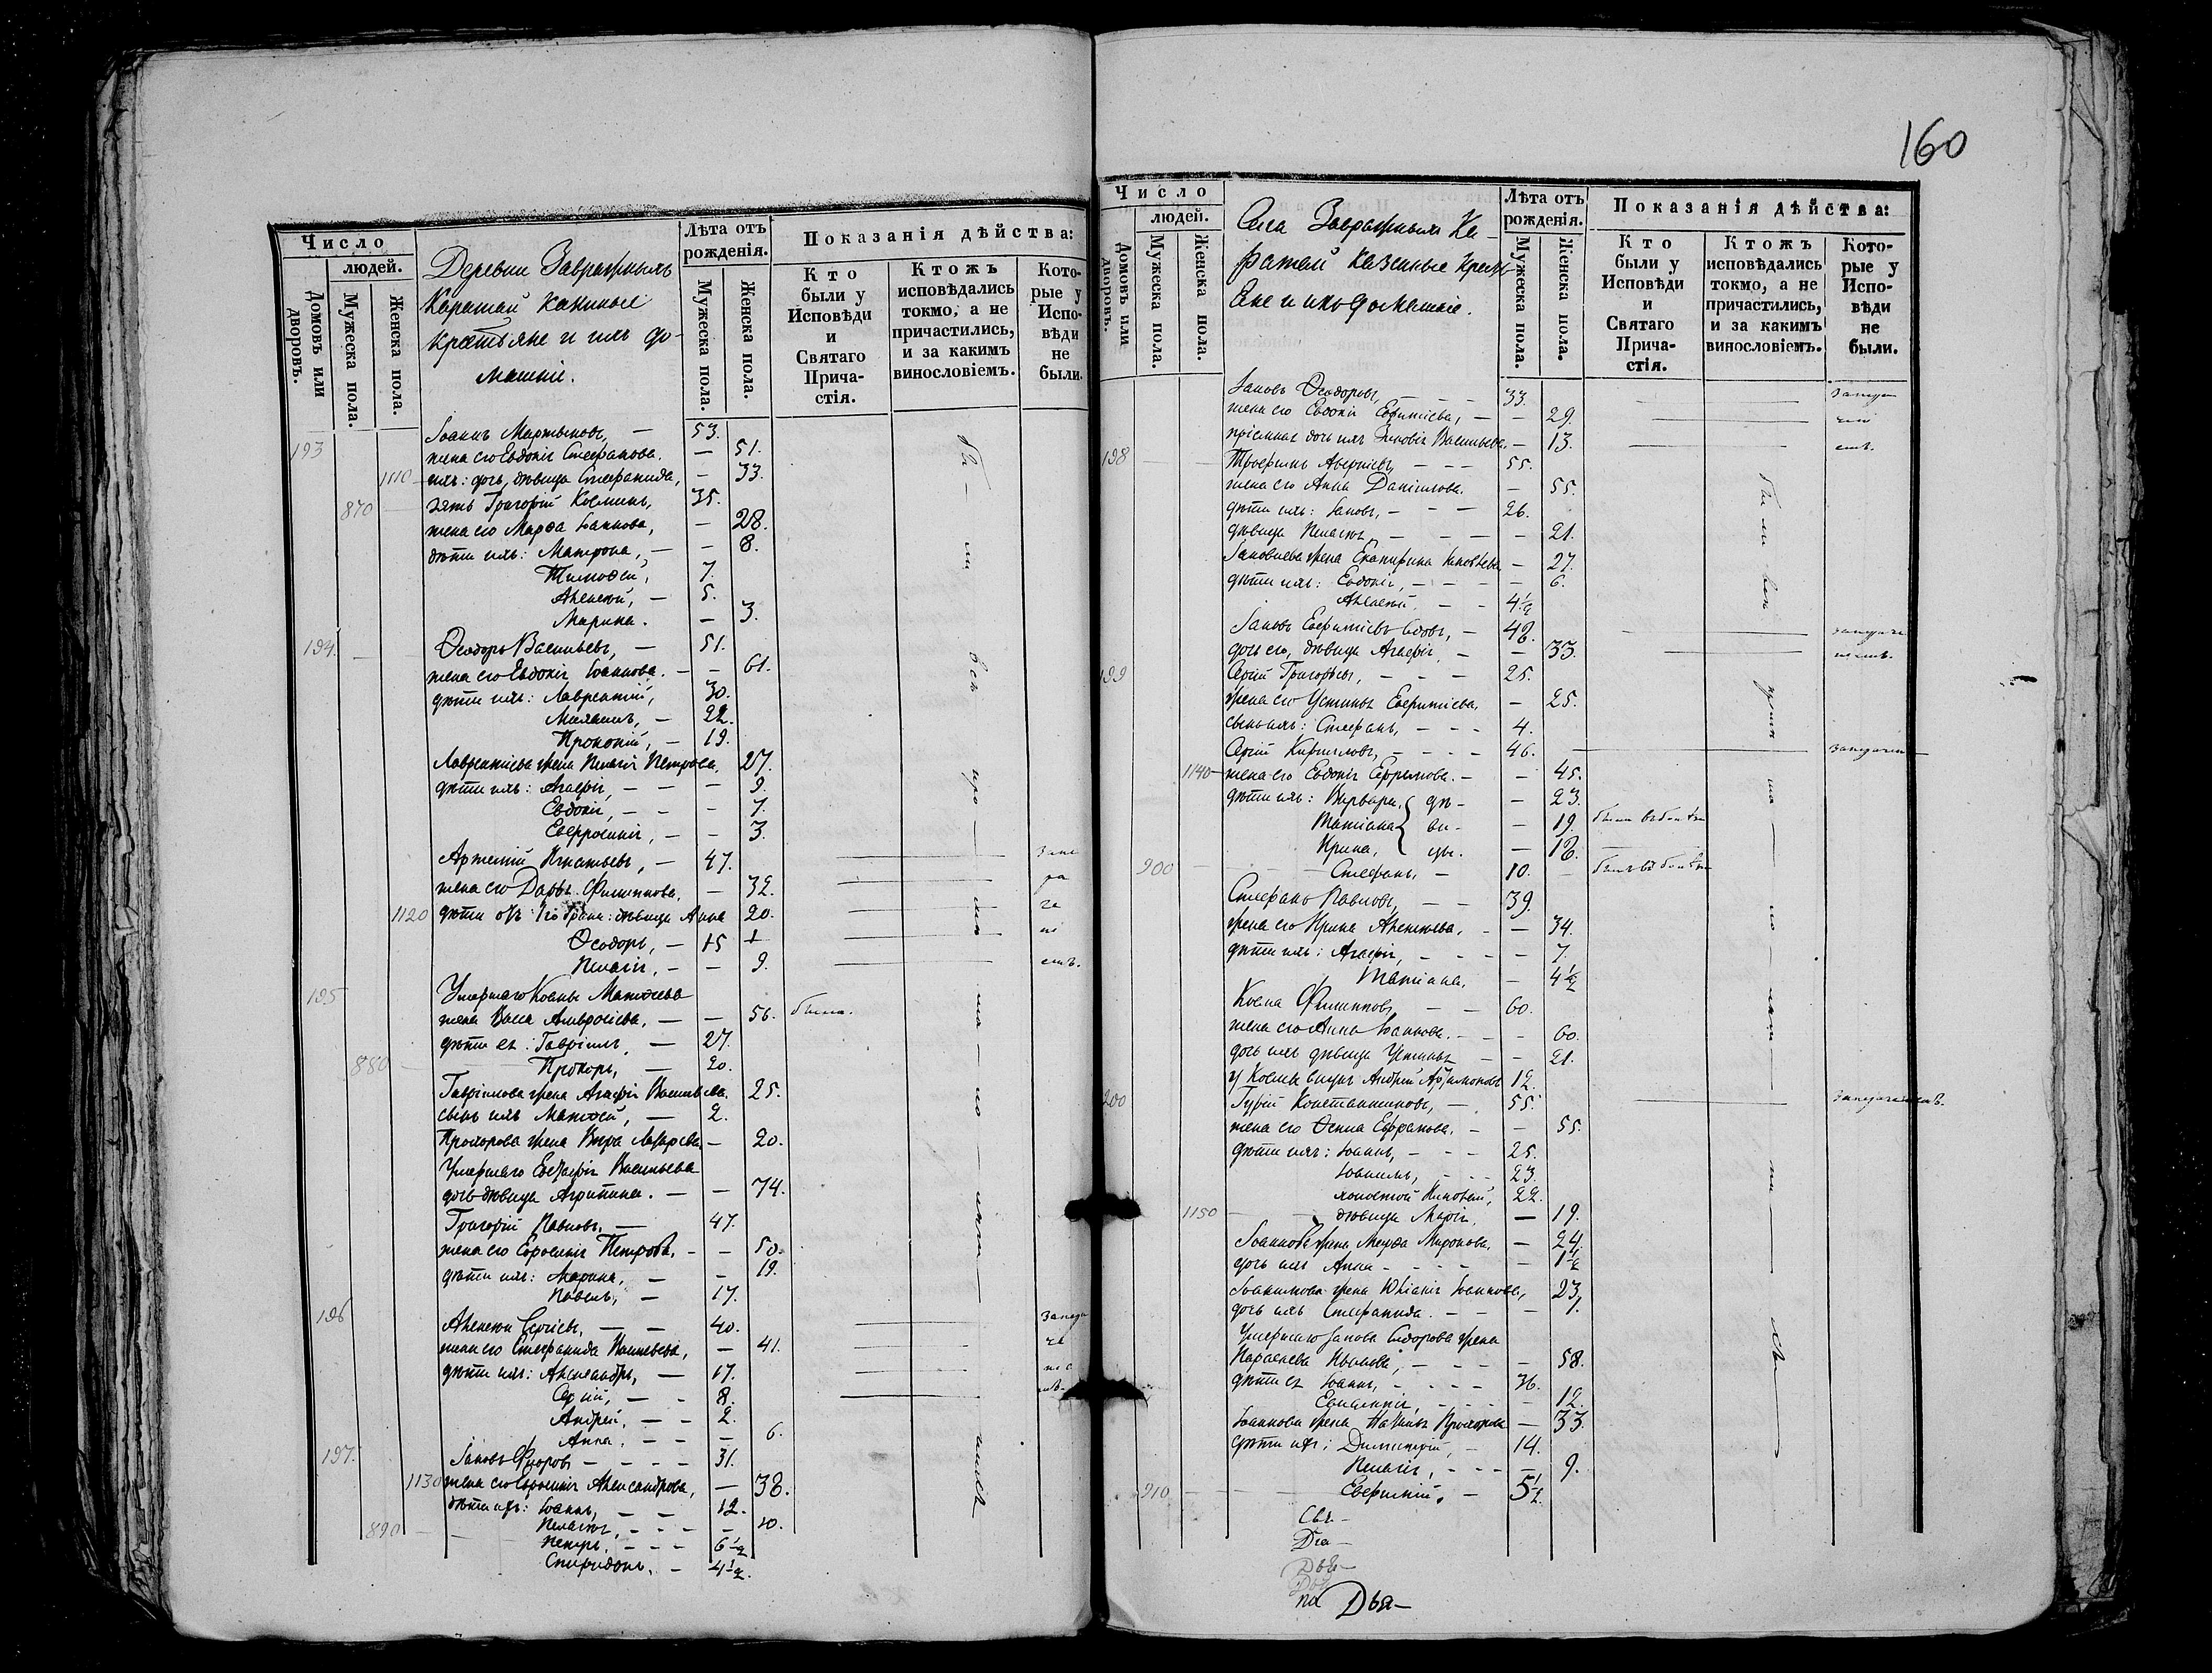 160
Число
людей.
Домовъ или дворовъ.
Мужеска пола.
Женска пола.
Деревни Завражныхъ
Каратай казенные
крестьяне и ихъ до-
машніе.
Лѣта отъ рожденія.
Мужеска пола.
Женска пола.
Показанія дѣйства:
Кто были у Исповѣди и Святаго Прича-стія.
Ктожъ исповѣдались токмо, а не причастились, и за какимъ винословіемъ.
Кото-рые у Испо-вѣди не были.
193 Іоаннъ Мартыновъ, — 53.
жена его Евдокія Стефанова. — 51.
1110 ихъ: дочь, дѣвица Стефанида, 33.
870 зять Григорій Косминъ, 35.
жена его Марѳа Іоаннова, — 28.
дѣти ихъ: Матрона, — — 8.
Тимоѳей, 7.
Алексѣй, — 5.
Марина. — 3.
194. Ѳеодоръ Васильевъ, — 51.
жена его Евдокія Іоаннова. — — 61.
дѣти ихъ: Лаврентій, 30.
22.
Прокопій, — 19.
Лаврентіева жена Пелагія Петрова, 27.
дѣти ихъ: Агафія, — — — 9.
Евдокія, — — — 7.
Евфросинія, — — 3.
Артемій Игнатьевъ, — 47.
жена его Дарья Филиппова, — 32.
1120 дѣти отъ 1го брака: дѣвица Анна 20.
Ѳеодоръ, — 15
Пелагія, — — 9.
195 Умершаго Космы Матѳеева
жена Васса Амвросіева, — — 56. была.
дѣти ея: Гавріилъ, — 27.
880 Прохоръ, — 20.
Гавріилова жена Агафія Васильева. 25.
сынъ ихъ Матѳей, — 2.
Прохорова жена Вѣра Лазарева — 20.
Умершаго Евстафія Васильева
дочь дѣвица Агрипина. — — 74.
Григорій Павловъ, — 47.
жена его Ефросинія Петрова, — — 50.
дѣти ихъ: Марина, — — 19.
Павелъ, — 17.
196 Алексѣй Сергіевъ, — — 40.
жена его Стефанида — 41.
дѣти ихъ: Александръ, — 17.
Сергій, — — 8.
Андрей, — — 2.
Анна. — — — 6.
197. Іаковъ — — — — 31.
1130 жена его Ефросинія Александрова, — 38.
дѣти ихъ: Іоаннъ, — — 12.
Пелагія, — — — — 10.
890 Петръ, — — — 6 1/2
Спиридонъ. — 4 1/2.
Были всѣ
Число
людей.
Домовъ или дворовъ.
Мужеска пола.
Женска пола.
Села Завражныхъ Ка-
ратай казенные кресть-
яне и ихъ домашніе.
Лѣта отъ рожденія.
Мужеска пола.
Женска пола.
Показанія дѣйства:
Кто были у Исповѣди и Святаго Прича-стія.
Ктожъ исповѣдались токмо, а не причастились, и за какимъ винословіемъ.
Кото-рые у Испо-вѣди не были.
Іаковъ Ѳеодоровъ, — — — 33.
жена его Евдокія Евфиміева, — — 29.
пріемная дочь ихъ Зиновія Васильева. — 13.
198 Трофимъ — — — 55.
жена его Анна Даніилова. — 55.
дѣти ихъ: Іаковъ, — — — 26.
дѣвица Пелагія, — — — — 21.
Іаковлева жена Екатерина Яковлева — 27.
дѣти ихъ: Евдокія, — — — — 6.
Алексѣй. — — 4 1/2
Іаковъ Евфиміевъ —
дочь его, дѣвица Агафія, — — 33.
199 Сергій Григорьевъ, — — — 25.
жена его Устинья Евфиміева, — 25.
сынъ ихъ: Стефанъ, — — — 4.
Сергій Кирилловъ, — — — — 46.
1140 жена его Евдокія Ефремова. — — 45.
дѣти ихъ: Варвара, дѣ- — 23.
Татіана ви- — 19.
Ирина, цы. —
900 Стефанъ, — 10.
Стефанъ Павловъ, — — 39.
жена его Ирина Алексѣева, — — 34.
дѣти ихъ: Агафія, — — — — 7.
Татіана. — 4 1/2
Косма Филипповъ, — — 60.
жена его Анна Іоаннова. — — — 60.
дочь ихъ дѣвица Устинья — — 21.
у Космы внукъ Андрей 12.
200 Гурій Константиновъ, — 55.
жена его — — 55.
дѣти ихъ: Іоаннъ, — — — 25.
Іоакимъ, — — — 23.
холостой 22.
1150 дѣвица Марія, — 19.
Іоаннова жена Марѳа Миронова, — 24.
дочь ихъ Анна — — — — — 1 1/2
Іоакимова жена Іуліанія Іоаннова, 23.
дочь ихъ Стефанида. — — —
Умершаго Іакова Сидорова жена
Параскева — — — — 58.
дѣти ея Іоаннъ, — — — — 36.
— — — — 12.
Іоаннова жена Наталья Прохорова — 33.
дѣти ихъ: Димитрій, — 14.
Пелагія, — — — — 9.
910 Евфимій. — 5 1/2.
Свя-
Діа-
Дья-
па Дья-